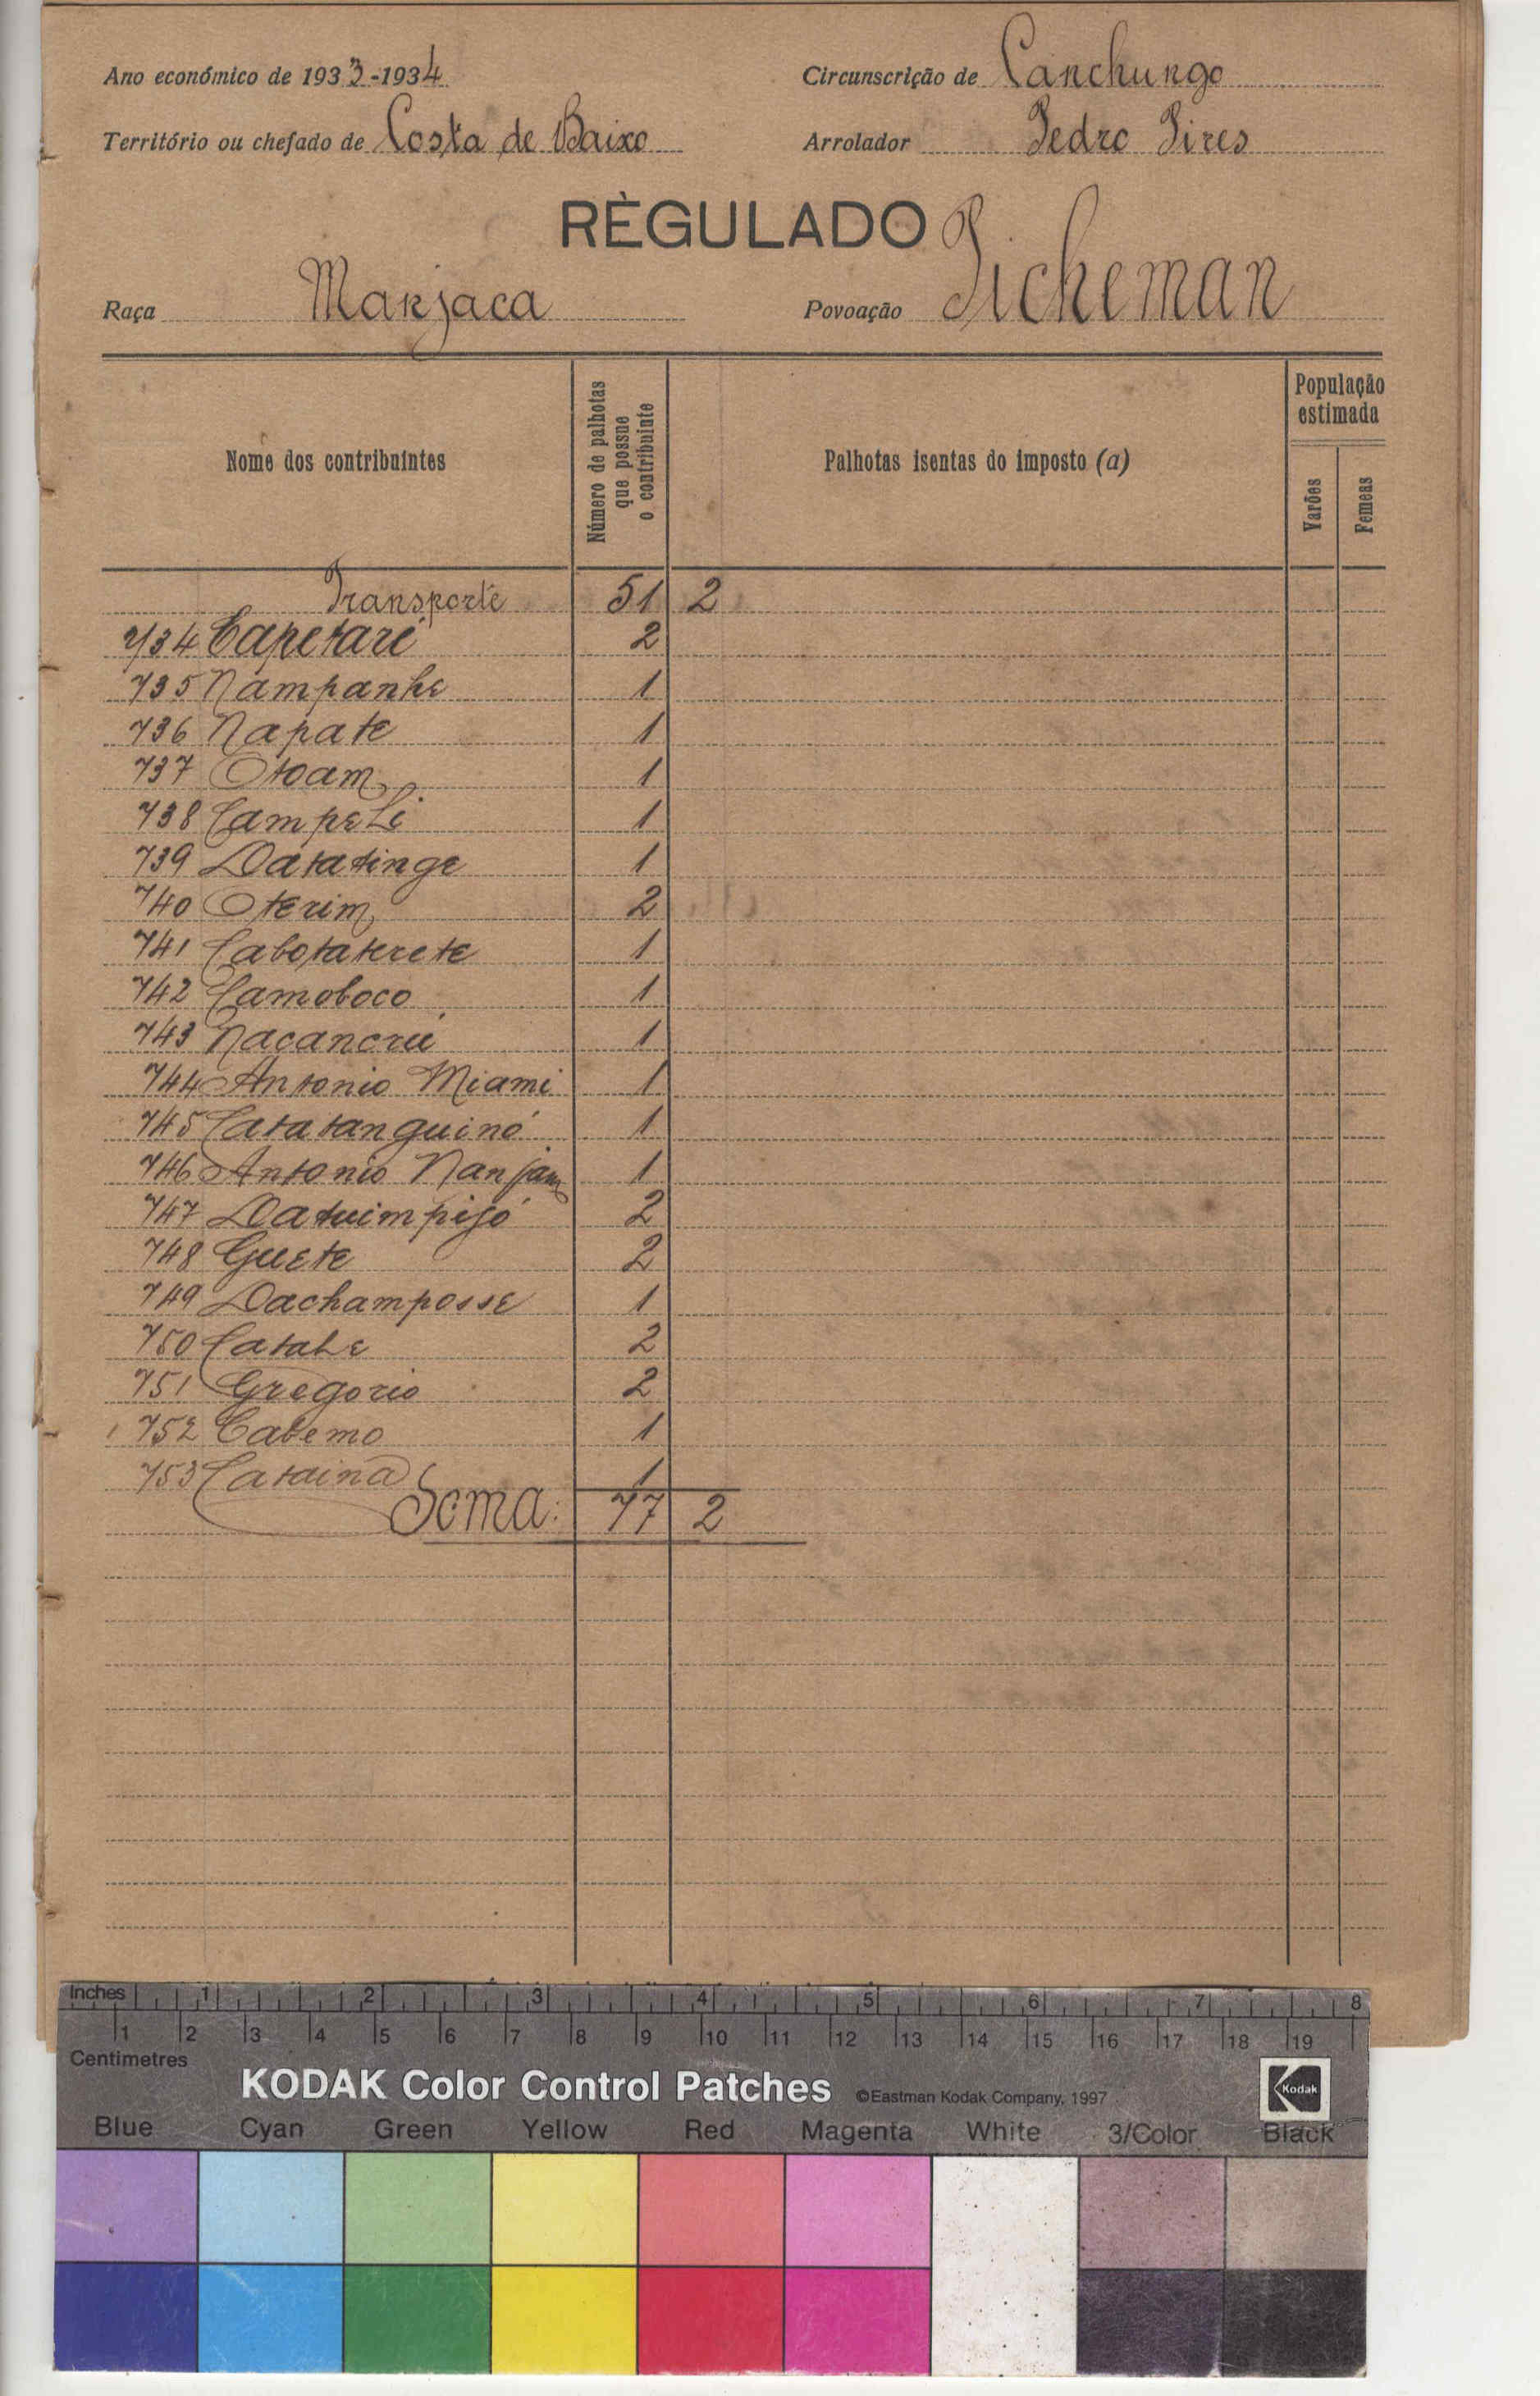 Ano económico de 1933-1934
Circunscrição de Canchungo
Território ou chefado de Costa de Baixo
Arrolador Pedro Pires
RÈGULADO
Raça Manjaca
Povoação Picheman
Nome dos contribuintes
Número de palhotas que possue o contribuinte
Palhotas isentas do imposto (a)
População estimada
Varões
Femeas
Transporte 51 2
734 Capetaré 2
735 Nampanhe 1
736 Napate 1
737 Otoam 1
738 Campeli 1
739 Datatinge 1
740 Oterim 2
741 Cabotaterete 1
742 Camoboco 1
743 Nacancrú 1
744 Antonio Miami 1
745 Catatanguinó 1
746 Antonio Nanjam 1
747 Datuimpijó 2
748 Guete 2
749 Dachamposse 1
750 Catahe 2
751 Gregorio 2
752 Catemo 1
753 Cataina 1
Soma: 77 2
Inches 1 2 3 4 5 6 7 8
1 2 3 4 5 6 7 8 9 10 11 12 13 14 15 16 17 18 19
Centimetres
KODAK Color Control Patches ©Eastman Kodak Company, 1997 Kodak
Blue Cyan Green Yellow Red Magenta White 3/Color Black